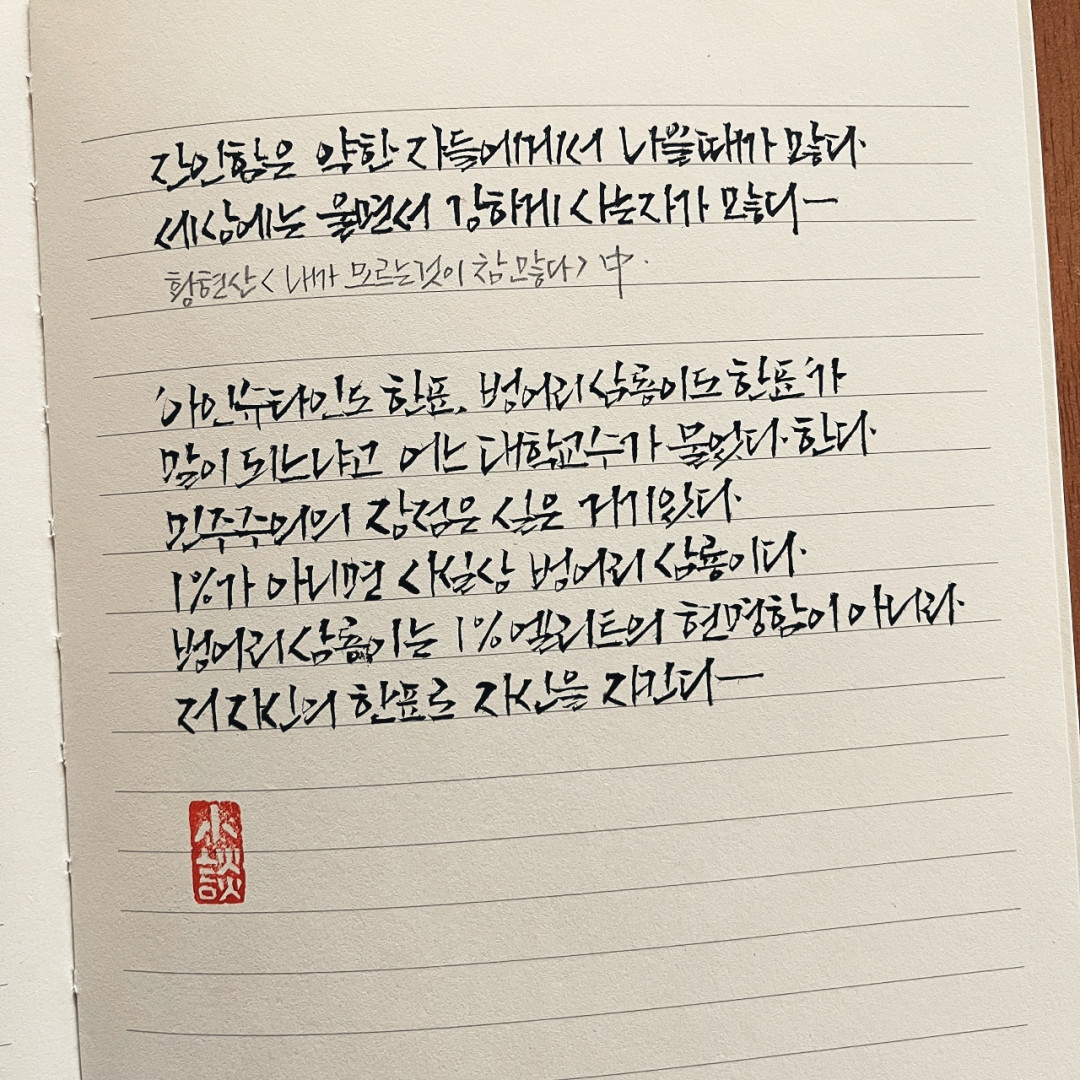 잔인함은 약한 자들에게서 나올때가 많다.
세상에는 울면서 강하게 사는자가 많다—
황현산 < 내가 모르는것이 참 많다 > 中.
'아인슈타인도 한표, 벙어리 삼룡이도 한표'가
말이 되느냐고 어느 대학교수가 물었다. 한다.
민주주의의 장점은 실은 거기있다.
1%가 아니면 사실상 벙어리 삼룡이다.
벙어리 삼룡이는 1% 엘리트의 현명함이 아니라.
저 자신의 한표로 자신을 지킨다—
小談